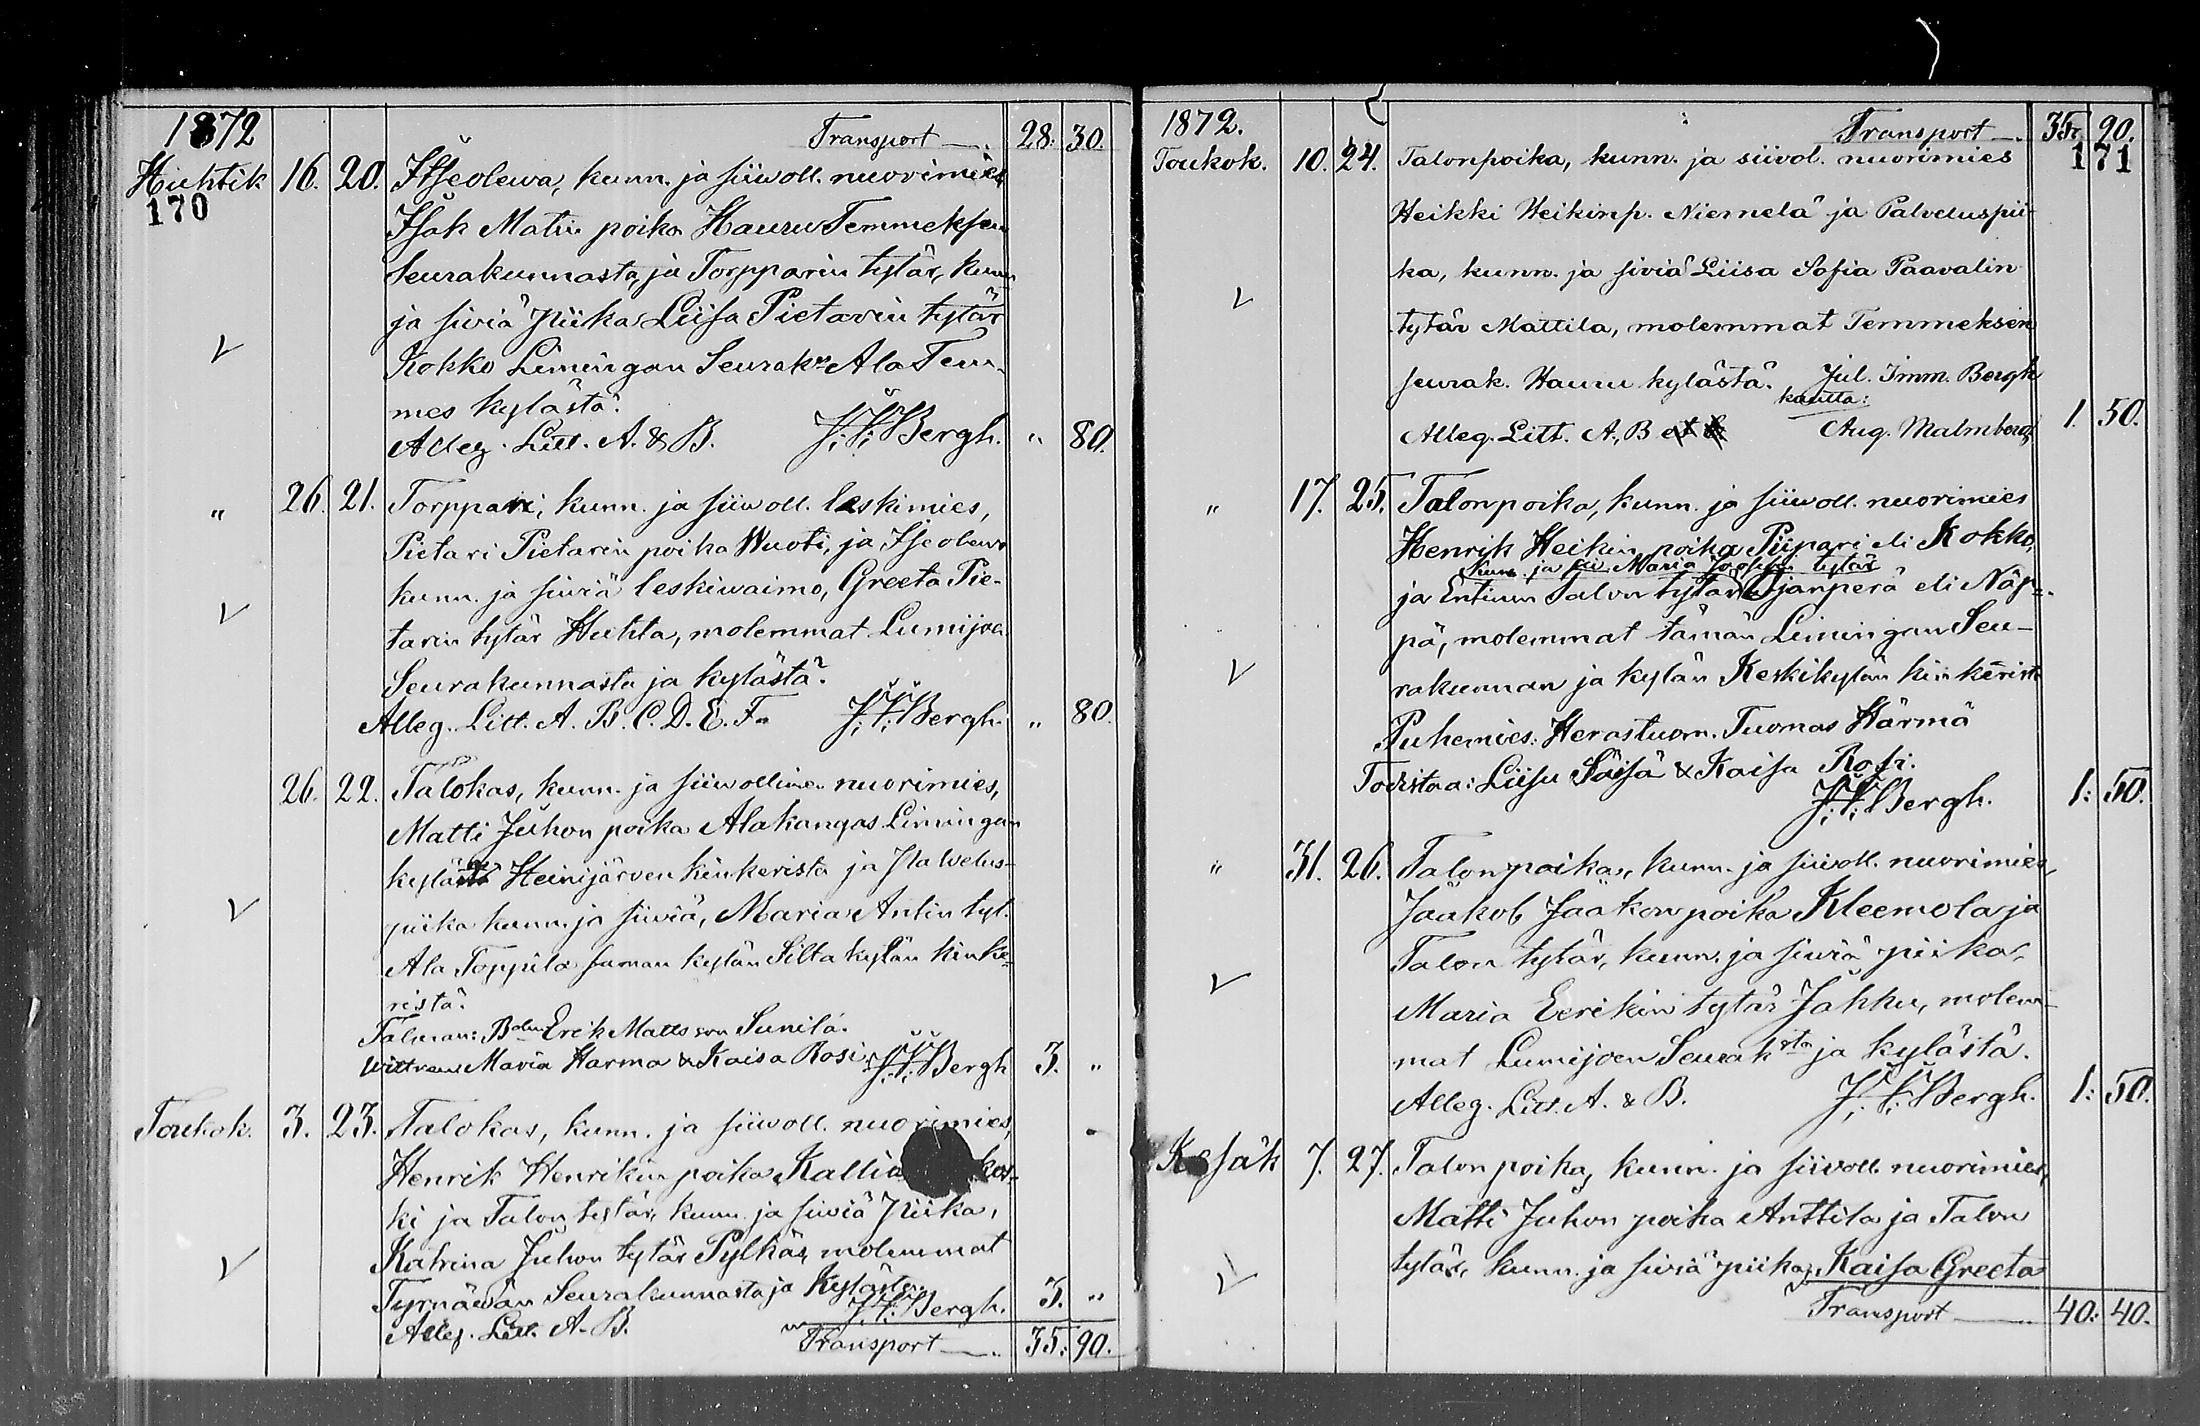 1872
Transport 28: 30.
Huhtik 16. 20. Itseolewa, kunn. ja siiwoll. nuorimies
170
Isak Matin poika Hauru Temmeksen
Seurakunnasta, ja Torpparin tytär, kunn.
ja siviä piika Liisa Pietarin tytär
Kokko Limingan Seurak:n Ala Tem-
mes kylästä.
Alleg. Litt. A. & B. J: I: Bergh. " 80.
" 26. 21. Torppari, kunn. ja siiwoll. leskimies,
Pietari Pietarin poika Wuoti, ja Itseolewa
kunn. ja siwiä leskiwaimo, Greeta Pie-
tarin tytär Huhta, molemmat Lumijoen
Seurakunnasta ja kylästä.
Alleg. Litt. A. B. C. D. E. F. J: I: Bergh. " 80.
26. 22. Talokas, kunn. ja siiwollinen nuorimies,
Matti Juhon poika Alakangas Limingan
kylästä Heinijärven kinkerista ja Palwelus-
piika kunn. ja siwiä, Maria Antin tyt.
Ala Toppila saman kylän Silta kylän kinke-
ristä.
Talman: Bdm Erik Matts son Sunila.
Wittnen Maria Harma & Kaisa Rosi J: I: Bergh 3. "
Toukok. 3. 23. Talokas, kunn. ja siiwoll. nuorimies,
Henrik Henrikin poika Kallio kos-
ki ja Talon tytär, kunn. ja siwiä Piika,
Katrina Juhon tytär Pylkäs, molemmat
Tyrnäwän Seurakunnasta ja Kylästä.
J: I: Bergh. 3. "
Alleg. Litt. A. B.
Transport 35: 90.
1872. Transport 35: 90.
171
Toukok. 10. 24. Talonpoika, kunn. ja siivol. nuorimies
Heikki Heikinp. Niemelä ja Palveluspii-
ka, kunn. ja siviä Liisa Sofia Paavalin
tytär Mattila, molemmat Temmeksen
seurak. Hauru kylästä. Jul. Imm. Bergh
kautta:
Alleg. Litt. A, B Aug. Malmberg 1. 50.
" 17. 25. Talonpoika, kunn. ja siiwoll. nuorimies
Henrik Heikin poika Piipari eli Kokko,
kunn. ja siv. Maria Josefin tytär
ja Entinen Talon tytär Ojanperä eli Näp-
pä, molemmat tämän Limingan Seu-
rakunnan ja kylän Keskikylän kinkeristä
Puhemies: Herastuom. Tuomas Härmä
Todistaa: Liisa Säisä & Kaisa Rosi.
J: I: Bergh. 1: 50.
" 31. 26. Talonpoika, kunn. ja siiwoll. nuorimies,
Jaakob Jaakon poika Kleemola ja
Talon tytär, kunn. ja siwiä piika,
Maria Eerikin tytär Jahku, molem-
mat Lumijoen Seurak:sta ja kylästä.
Alleg. Litt. A. & B. J: I: Bergh. 1: 50.
Kesäk 7. 27. Talon poika, kunn. ja siiwoll. nuorimies,
Matti Juhon poika Anttila ja Talon
tytär, kunn. ja siwiä piika, Kaisa Greeta
Transport 40: 40.